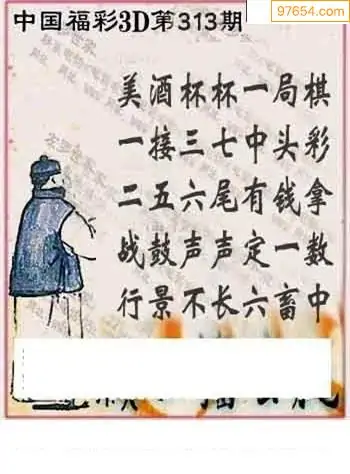 97654.com
中国福彩3D第313期
美酒杯杯一局棋
一接三七中头彩
二五六尾有钱拿
战鼓声声定一数
行景不长六畜中